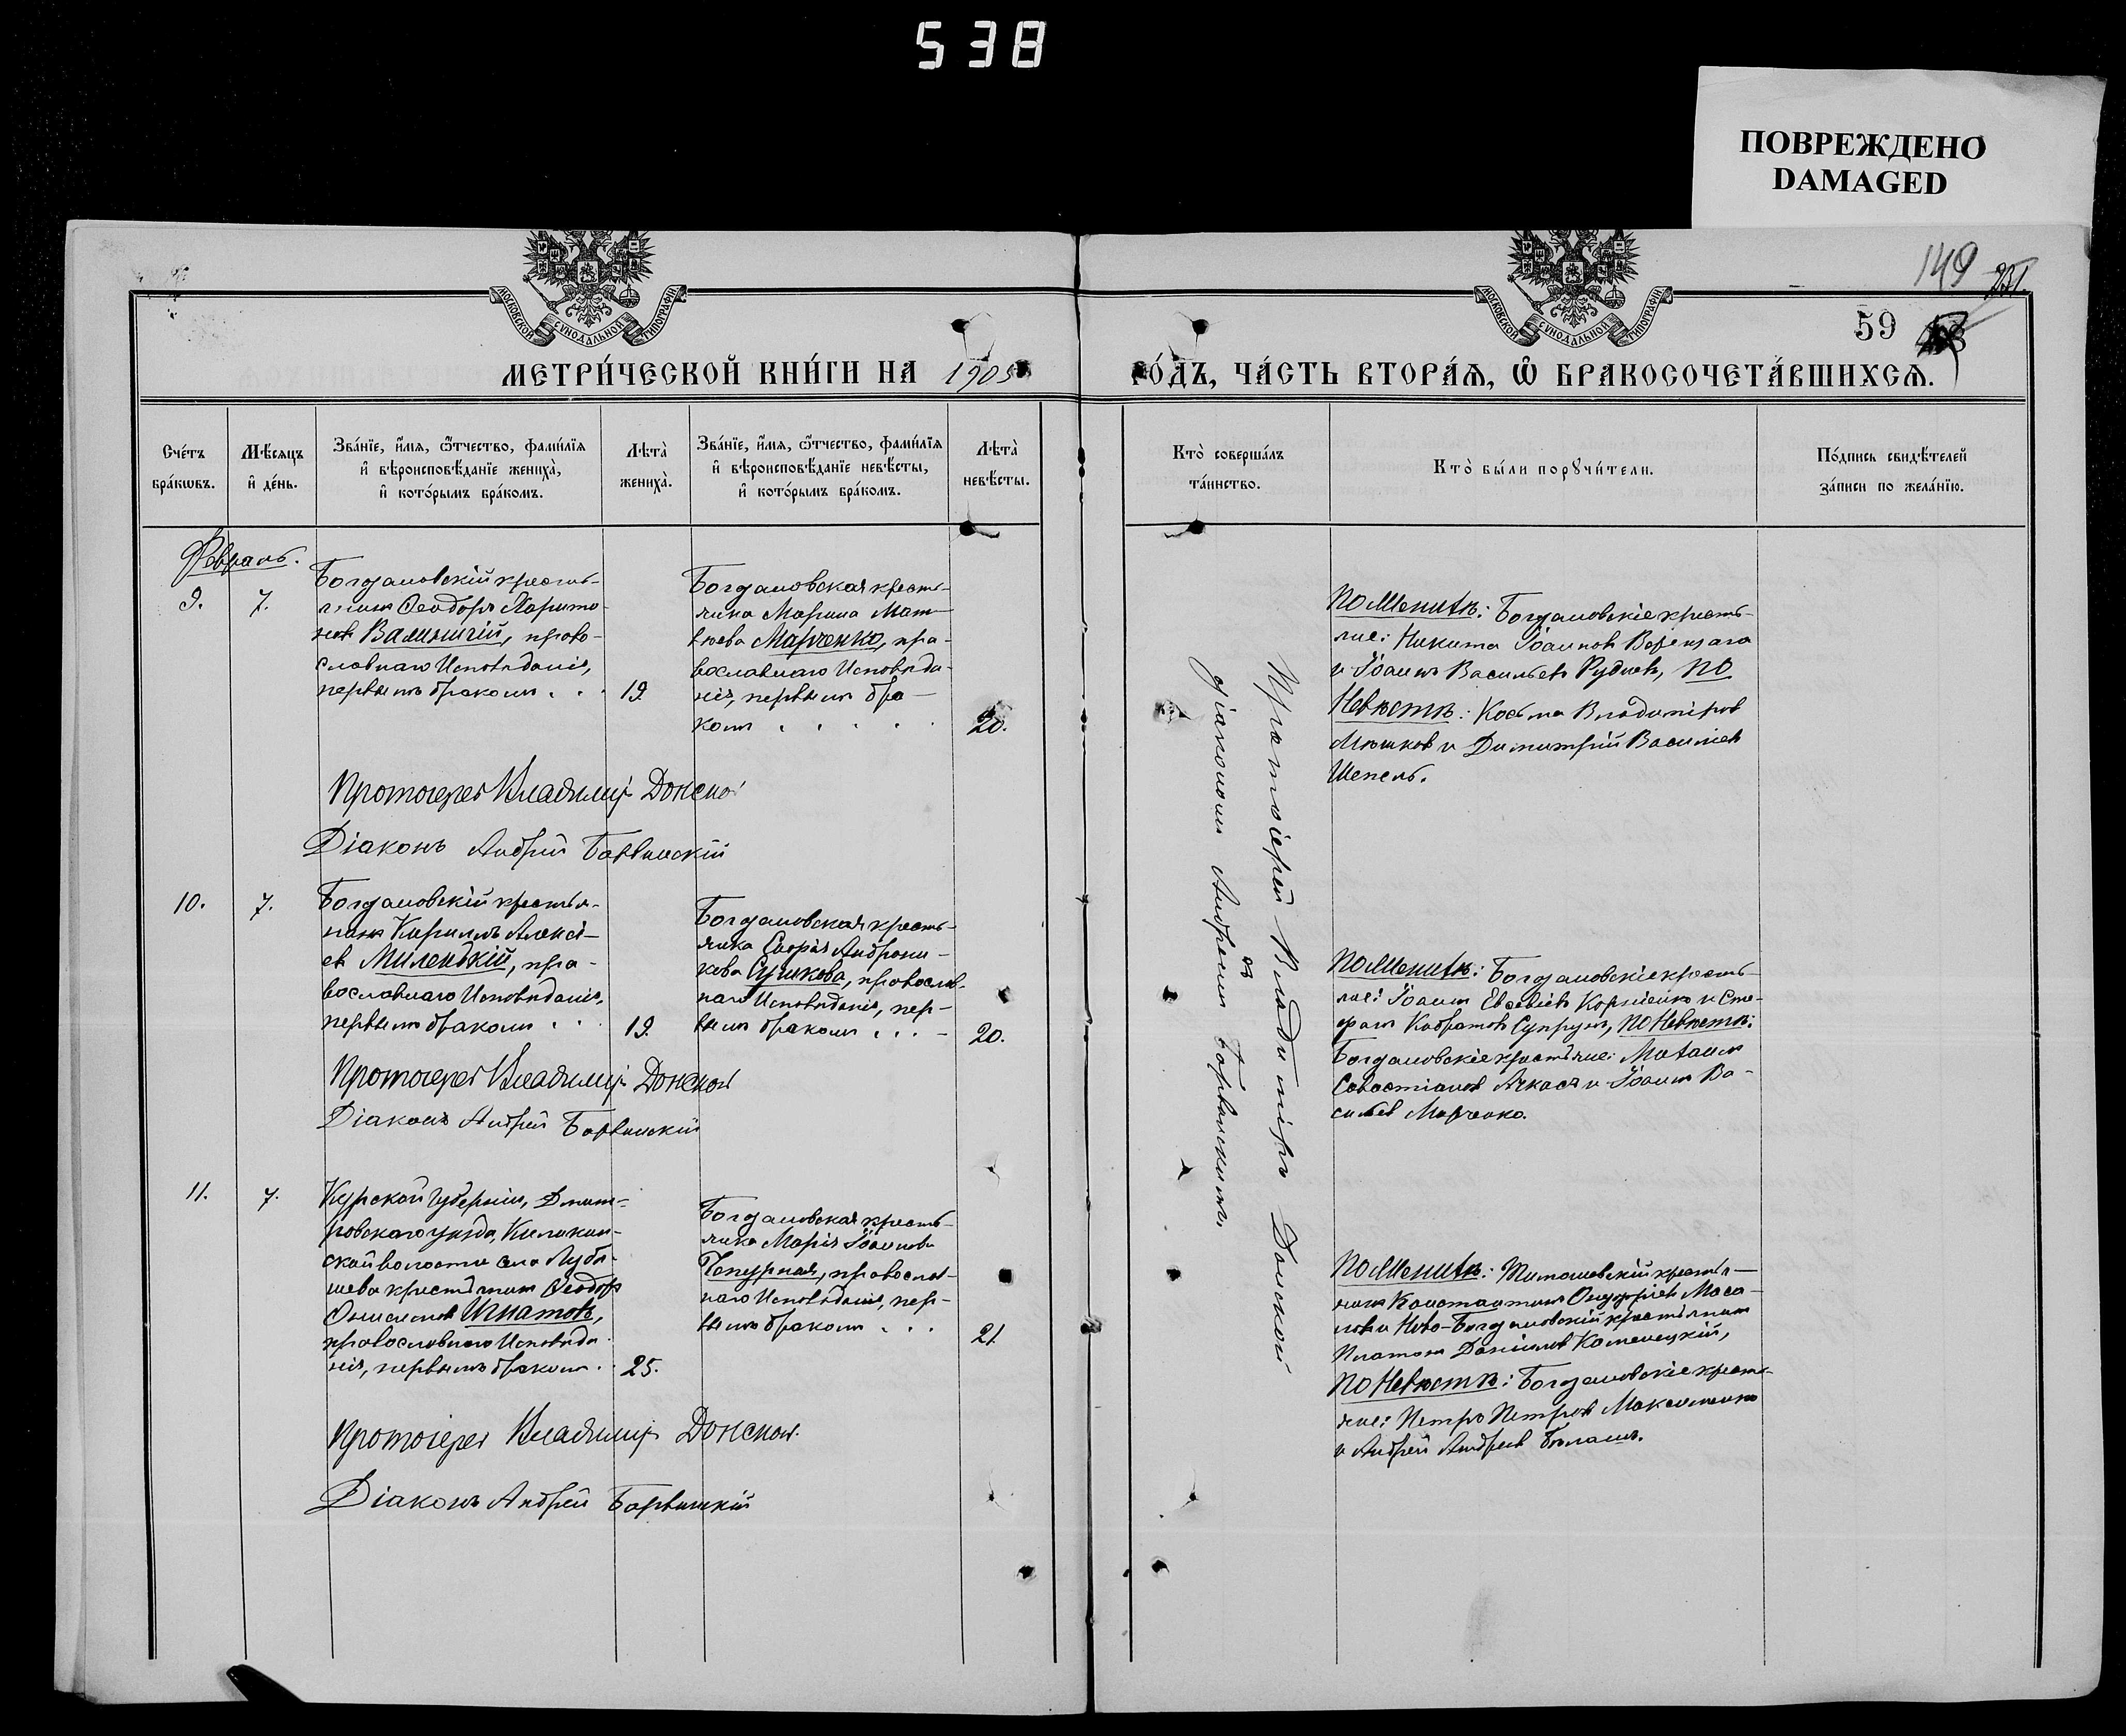 538
ПОВРЕЖДЕНО
DAMAGED
149
231.
59
МОСКОВСКОЙ СѴНОДАЛЬНОЙ ТИПОГРАФІИ
МОСКОВСКОЙ СѴНОДАЛЬНОЙ ТИПОГРАФІИ
МЕТРИ́ЧЕСКОЙ КНИ́ГИ НА 1905
ГО́ДЪ, ЧА́СТЬ ВТОРА́Ѧ, Ѿ БРАКОСОЧЕТА́ВШИХСѦ.
Сче́тъ бра́кѡвъ.
Мѣ́сяцъ и҆ де́нь.
Зва́нїе, и҆́мѧ, ѻ҆́тчество, фами́лїѧ
и҆ вѣроисповѣ́данїе жениха̀,
и҆ кото́рымъ бра́комъ.
Лѣта̀ жениха̀.
Зва́нїе, и҆́мѧ, ѻ҆́тчество, фами́лїѧ
и҆ вѣроисповѣ́данїе невѣ́сты,
и҆ кото́рымъ бра́комъ.
Лѣта̀ невѣ́сты.
Кто̀ соверша́лъ
та́инство.
Кто̀ бы́ли порꙋчи́тели.
По́дпись свидѣ́телей
за́писи по жела́нїю.
Февраль.
9.
7.
Богдановскій кресть-
янинъ Ѳеодоръ Харито-
новъ, право-
славнаго Исповѣданія,
первымъ бракомъ . .
19
Богдановская кресть-
янка Марина Мат-
вѣева Марченко, пра-
вославнаго Исповѣда-
нія, первымъ бра-
комъ . . . . .
20.
По Женихѣ: Богдановскіе кресть-
яне: Никита Іоанновъ
и Іоаннъ Васильевъ Рудневъ, По
Невѣстѣ: Косьма Владиміровъ
Мѣшковъ и Димитрій Васильевъ
Шепель.
Протоіерей Владимір Донской
Діаконъ Андрей Барвинскій
10.
7.
Богдановскій крестья-
нинъ Кириллъ Алексі-
евъ Миленькій, пра-
вославнаго Исповѣданія,
первымъ бракомъ . .
19.
Богдановская кресть-
янка Софія Андрони-
кова Сушкова, православ-
наго Исповѣданія, пер-
вымъ бракомъ . . .
20.
По Женихѣ: Богдановскіе кресть-
яне: Іоаннъ Евсевіевъ Корніенко и Сте-
фанъ Супрунъ, По Невѣстѣ:
Богдановскіе крестьяне:
Севастіановъ и Іоаннъ Ва-
сильевъ Марченко.
Протоіерей Владимір Донской
Діаконъ Андрей Барвинскій
11.
7.
Курской Губерніи, Дмит-
ровскаго уѣзда,
ской волости села Лубя-
шева крестьянинъ Ѳеодоръ
Онисимовъ Игнатовъ,
православнаго Исповѣда-
нія, первымъ бракомъ.
25.
Богдановская кресть-
янка Марія Іоаннова
Чепурная, православ-
наго Исповѣданія, пер-
вымъ бракомъ . . .
21
По Женихѣ: Тимошевскій крестья-
нинъ Константинъ Онуфріевъ Маса-
ловъ и Ново-Богдановскій крестьянинъ
Платонъ Даніиловъ Каменецкій,
По Невѣстѣ: Богдановскіе кресть-
яне: Петръ Петровъ Максименко
и Андрей Андреевъ Бѣлашъ.
Протоіерей Владимір Донской
Діаконъ Андрей Барвинскій
Протоіерей Владиміръ Донской
съ
діакономъ Андреемъ Барвинскимъ.